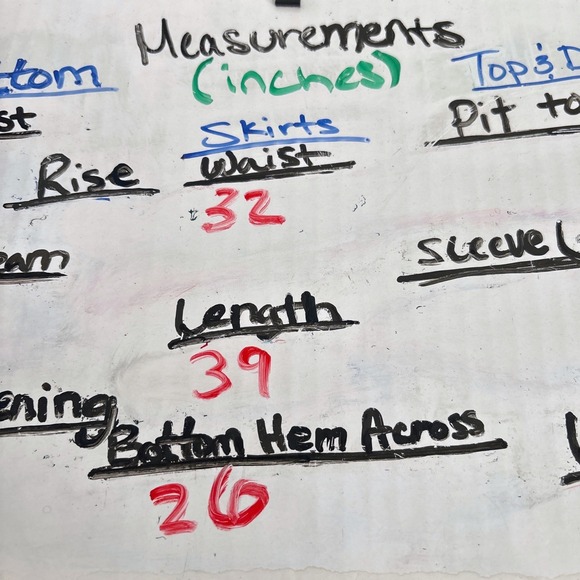 Measurements
(inches)
tom
Top & D
st
Skirts
Pit to
Rise
Waist
32
eam
Sleeve
Length
39
ening
Bottom Hem Across
26